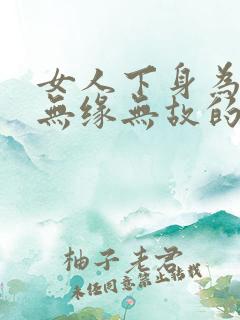 女人下身為
無缘無故的
柚子老君
未任同意禁止转载